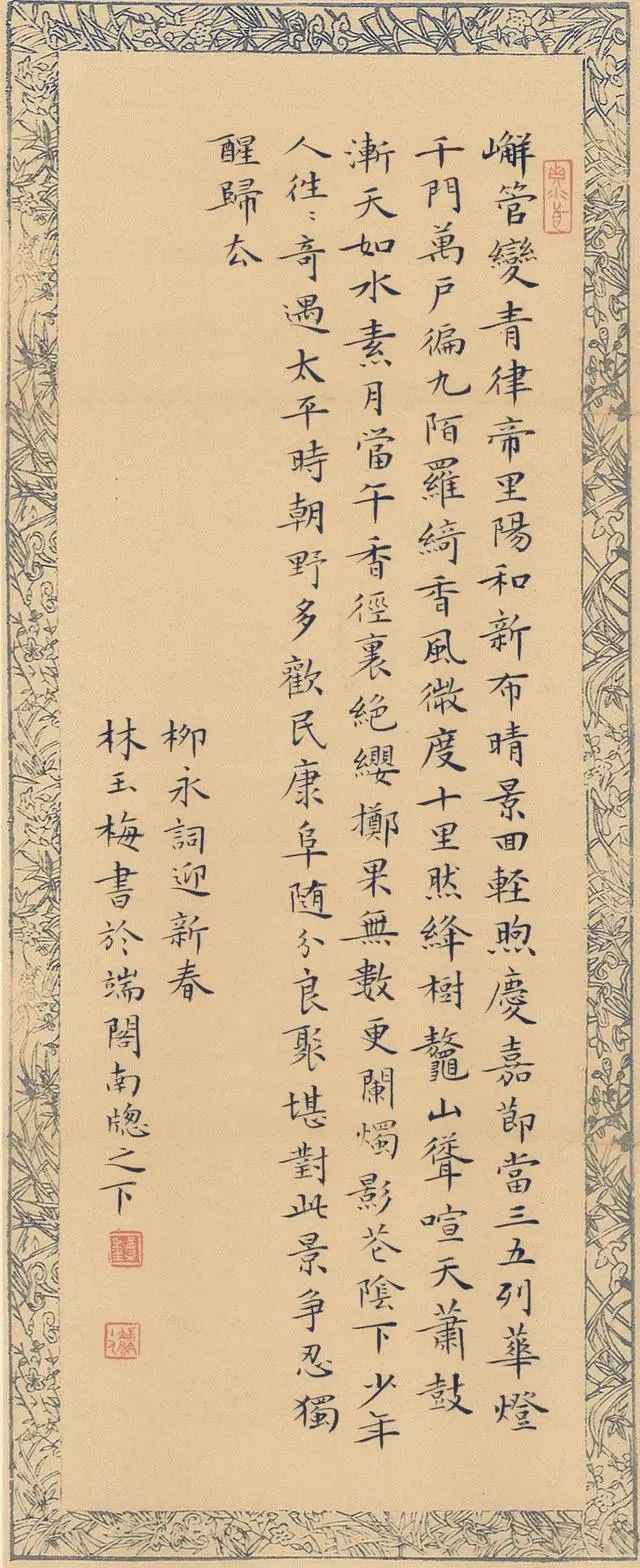 嶰管變青律帝里陽和新布晴景囬軽煦慶嘉莭當三五列華燈
千門萬戶徧九陌羅綺香風微度十里然絳樹鼇山聳喧天蕭鼓
漸天如水素月當午香徑裏絕纓擲果無數更闌燭影花陰下少年
人往〻奇遇太平時朝野多歡民康阜随分良聚堪對此景爭忍獨
醒歸去
柳永詞迎新春
林玉梅書於端閣南牕之下